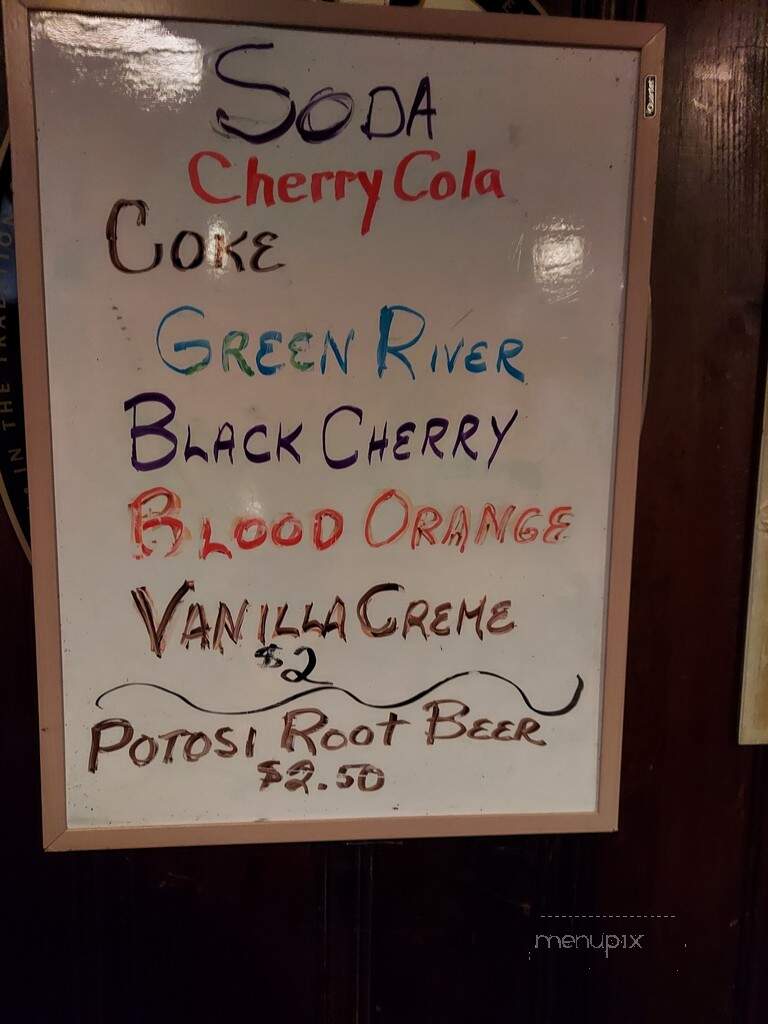 SODA
Cherry Cola
COKE
GREEN RIVER
BLACK CHERRY
BLOOD ORANGE
VANILLA CREME
$2
POTOSI ROOT BEER
$2.50
Quartet
IN THE TRADITION
menupix